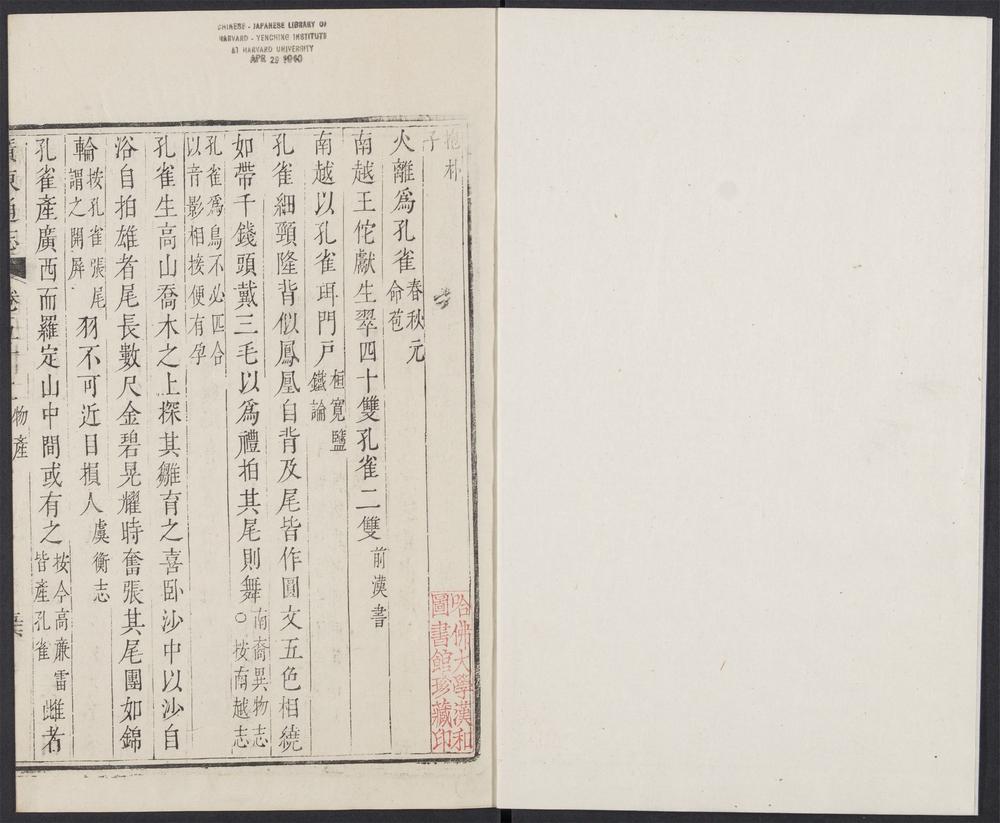 CHINESE - JAPANESE LIBRARY OF
HARVARD - YENCHING INSTITUTE
AT HARVARD UNIVERSITY
APR 29 1960
抱朴
子
火離爲孔雀春秋元
命苞
南越王佗獻生翠四十雙孔雀二雙前漢書
南越以孔雀珥門戶桓寬鹽
鐵論
孔雀細頸隆背似鳳凰自背及尾皆作圓文五色相繞
如帶千錢頭戴三毛以爲禮拍其尾則舞南裔異物志
○按南越志
孔雀爲鳥不必匹合
以音影相接便有孕
孔雀生高山喬木之上探其雛育之喜卧沙中以沙自
浴自拍雄者尾長數尺金碧晃耀時奮張其尾團如錦
輪按孔雀張尾
謂之開屏羽不可近目損人虞衡志
孔雀產廣西而羅定山中間或有之按今高廉雷
皆產孔雀雌者
廣東通志 卷五十二 物產
哈佛大學漢和
圖書館珍藏印